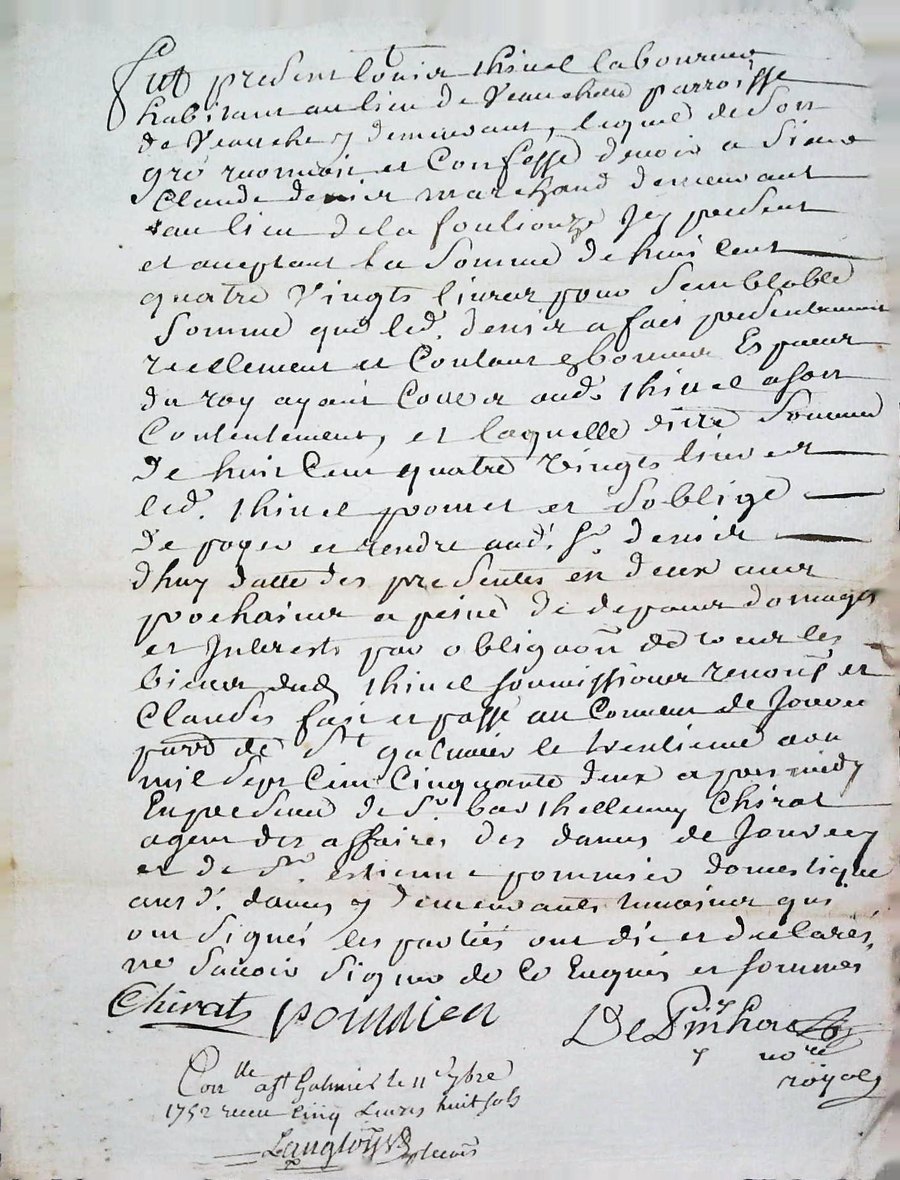 Fut present Louis thinel laboureur
habitant au lieu de Veauchette parroisse
de Veauche y demeurant, lequel de son
gré reconnoit et Confesse devoir a Sieur
Claude denier marchand demeurant
au lieu de la fouliouze Icy present
et acceptant la Somme de huit Cent
quatre Vingts livres pour Semblable
Somme que led. denier a fait presentement
reellement et Contant en bonnes Especes
du roy ayant Cours aud. thinel a son
Contentement, et laquelle dite Somme
de huit Cent quatre vingts livres
led. thinel promet et Soblige
de payer et rendre aud. Sr. denier
dhuy datte des presentes en deux ans
prochains a peine de depens domages
et Interests par obligaon de tous les
biens dud thinel soumissions renons et
Clauses fait et passé au Couvent de Jourcey
parr. de St galmier le trentieme aou
mil Sept Cent Cinquante deux apres midy
En presence de Sr. barthellemy Chirat
agent des affaires des dames de Jourcey
et de Sr. estienne pommier domestique
ausd. dames y demeurants temoins qui
ont Signés les parties ont dit et declarés
ne Savoir Signer de ce Enquis et sommés
Chirat pommier
nore
royal
Conlle a St Galmier le 11e 7bre
1752 receu Cinq Livres huit sols
Langlois